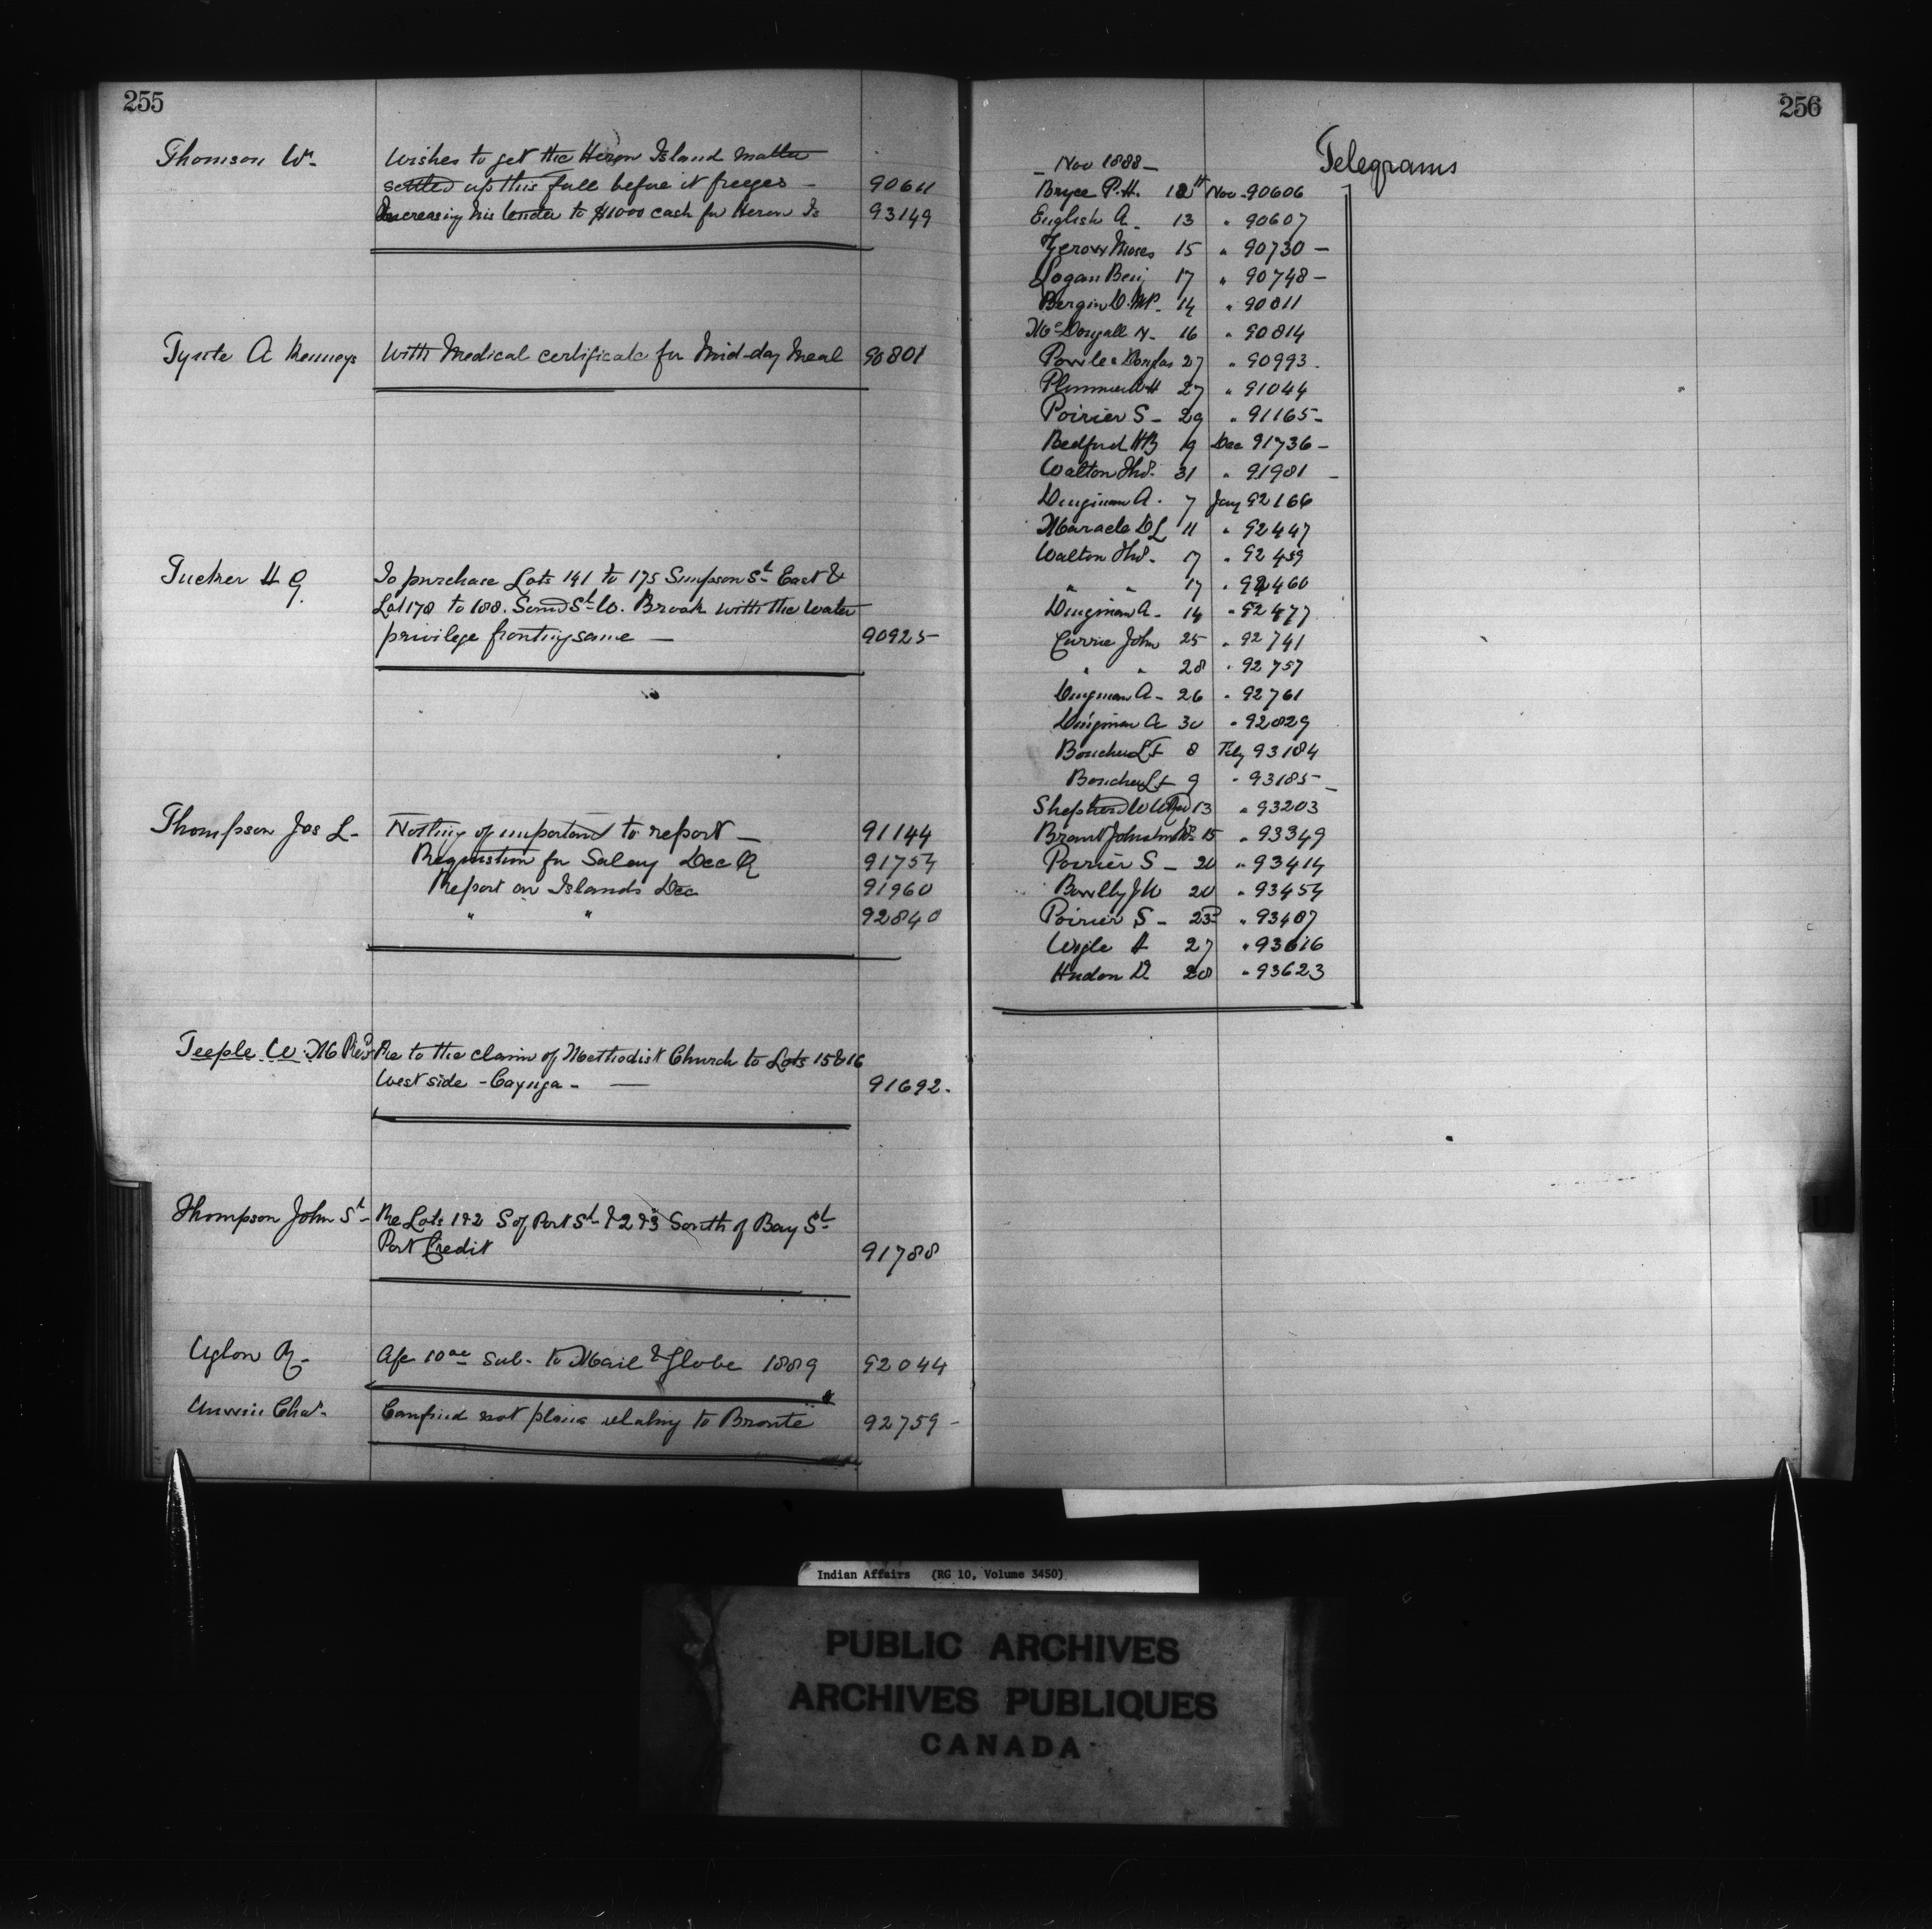 255
Thomson Wm Wishes to get the Heron Island matter
settled up this fall before it freezes - 90611
Increasing his tender to $1000 cash for Heron Is 93149
A Kenneys With Medical certificate for Mid-day Meal 90801
Tucker H G. To purchase Lots 141 to 175 Simpson St East &
Lot 178 to 188. St W. Brook with the water
privilege fronting same — 90925
Thompson Jos L- Nothing of important to report — 91144
Requisition for Salary Dec Q 91754
Report on Islands Dec 91960
" " 92840
Teeple W. M Revd Re to the claim of Methodist Church to Lots 15 & 16
West side - Cayuga - — 91692.
Thompson John St- Re Lots 1 & 2 S of Port St & 2 & 3 South of Bay St
Port Credit 91788
Uglow R- Afc 10 ac Sub. to Mail & Globe 1889 92044
Unwin Chas. Can find not plans relating to Bronte 92759 -
256
Telegrams
- Nov 1888 -
Bryce P.H. 12 Nov - 90606
English A - 13 " 90607
Moses 15 " 90730 -
Logan Benj 17 " 90748 -
Bergin D. MP. 14 " 90811
McDougall N - 16 " 90814
& Douglas 27 " 90993.
Plummer WH 27 " 91044
Poirier S - 29 " 91165 -
Bedford HB 9 Dec 91736 -
Walton Thos. 31 " 91981 -
Dingman A. 7 Jany 92166
Maracle DL 11 " 92447
Walton Thos. 17 " 92459
" " 17 " 92460
Dingman A - 14 " 92477
Currie John 25 " 92741
" " 28 " 92757
Dingman A - 26 " 92761
Dingman A 30 " 92829
Boucher Lt 8 Feby 93184
Boucher Lt 9 " 93185 -
Shepherd W W 13 " 93203
Brant Johnston 15 " 93349
Poirier S - 20 " 93414
J W 20 " 93454
Poirier S - 23 " 93487
Wigle A 27 " 93616
Hudon D 28 " 93623
U
Indian Affairs (RG 10, Volume 3450)
PUBLIC ARCHIVES
ARCHIVES PUBLIQUES
CANADA